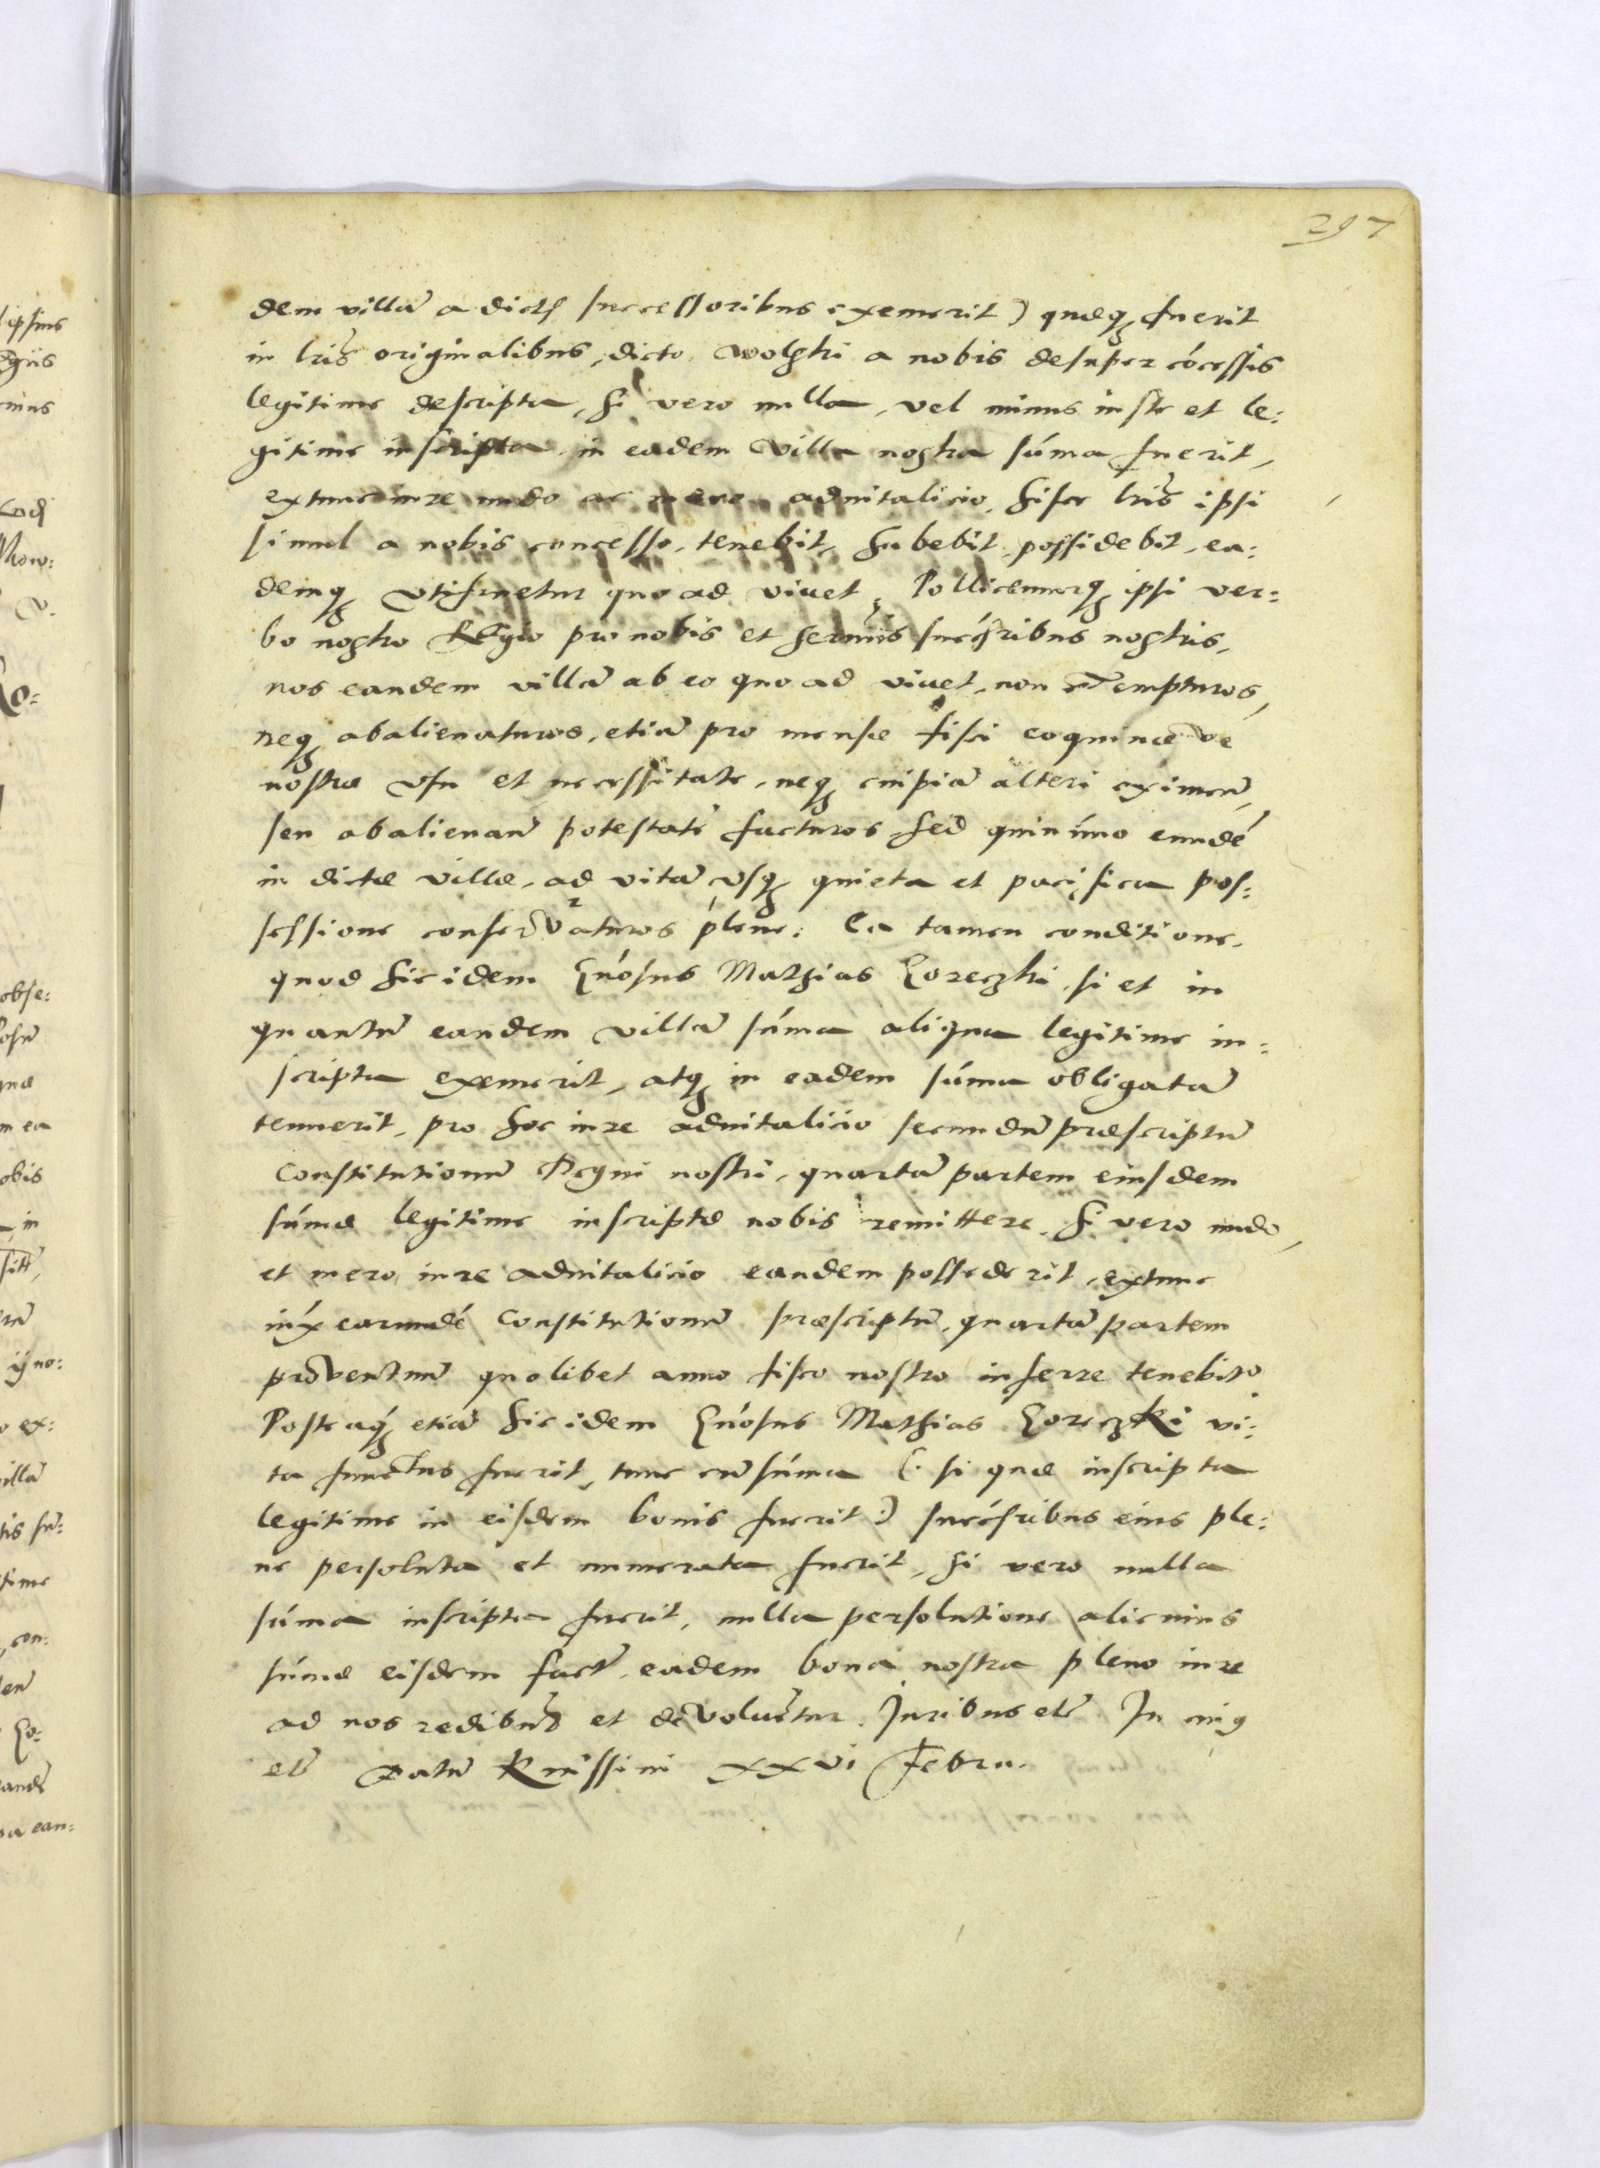 297
dem villã a dictis successoribus exemerit) quæq fuerit
in lris originalibus, dicto Wolski a nobis desuper cócessis
legitime descripta, si vero nulla, vel minus iuste et le:
gitime inscripta in eadem villa nostra súma fuerit,
extunc iure nudo ac mero aduitalicio, hisce lris ipsi
simul a nobis concesso, tenebit, habebit, possidebit, ea:
demq vtifruetur quo ad viuet. Pollicemurq ipsi ver:
bo nostro Regio pro nobis et Sermis succribus nostris,
nos eandem villã ab eo quo ad viuet, non exempturos,
neq abalienaturos, etiã pro mensæ fisci coquinæ ve
nostræ vsu et necessitate, neq cuipiã alteri eximen,
seu abalienan potestatẽ facturos sed quinimo eundé
in dictæ villæ, ad vitã vsq quieta et pacifica pos:
sessione conservaturos plene: Ea tamen conditione,
quod hic idem Gnósus Mathias Goreczki, si et in
quantũ eandem villã súma aliqua legitime in:
scripta exemerit, atq in eadem súma obligatã
tenuerit, pro hoc iure aduitalicio secundũ præscriptũ
Constitutionũ Regni nostri, quartã partem eiusdem
súmæ legitime inscriptæ nobis remittere. Si vero nudo,
et mero iure aduitalicio eandem possederit, extunc
iux earundé Constitutionũ præscriptũ, quartã partem
proventuũ quolibet anno fisco nostro inferre tenebitr
Posteaq etiã hic idem Gnósus Mathias Goreczki vi:
ta functus fuerit, tunc cũ súma (: si quæ inscripta
legitime in eisdem bonis fuerit :) succribus eius ple:
ne persoluta et numerata fuerit, si vero nulla
súma inscripta fuerit, nulla persolutione alicuius
súmæ eisdem fact, eadem bona nostra pleno iure
ad nos redibũt et devoluẽtur. Juribus etc In cuiq
etc Datũ Knissini XXVI Febru.